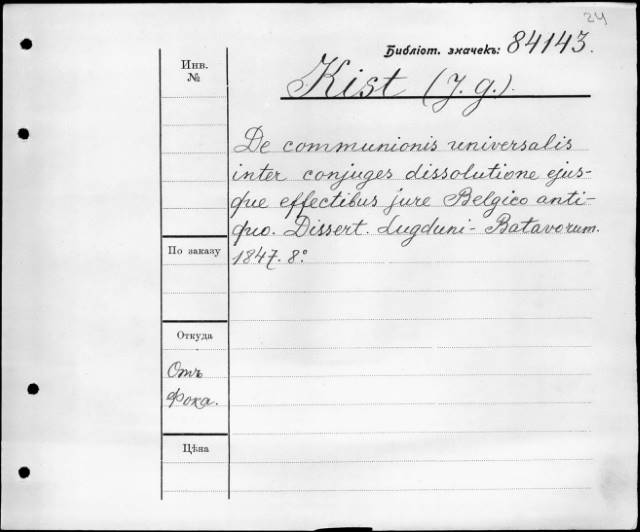 24
Библіот. значекъ: 84143.
Инв.
№
Kist (J. G.).
De communionis universalis
inter conjuges dissolutione ejus-
que effectibus jure Belgico anti-
quo. Dissert. Lugduni-Batavorum.
1847. 8°.
По заказу
Откуда
Отъ
Фока.
Цѣна